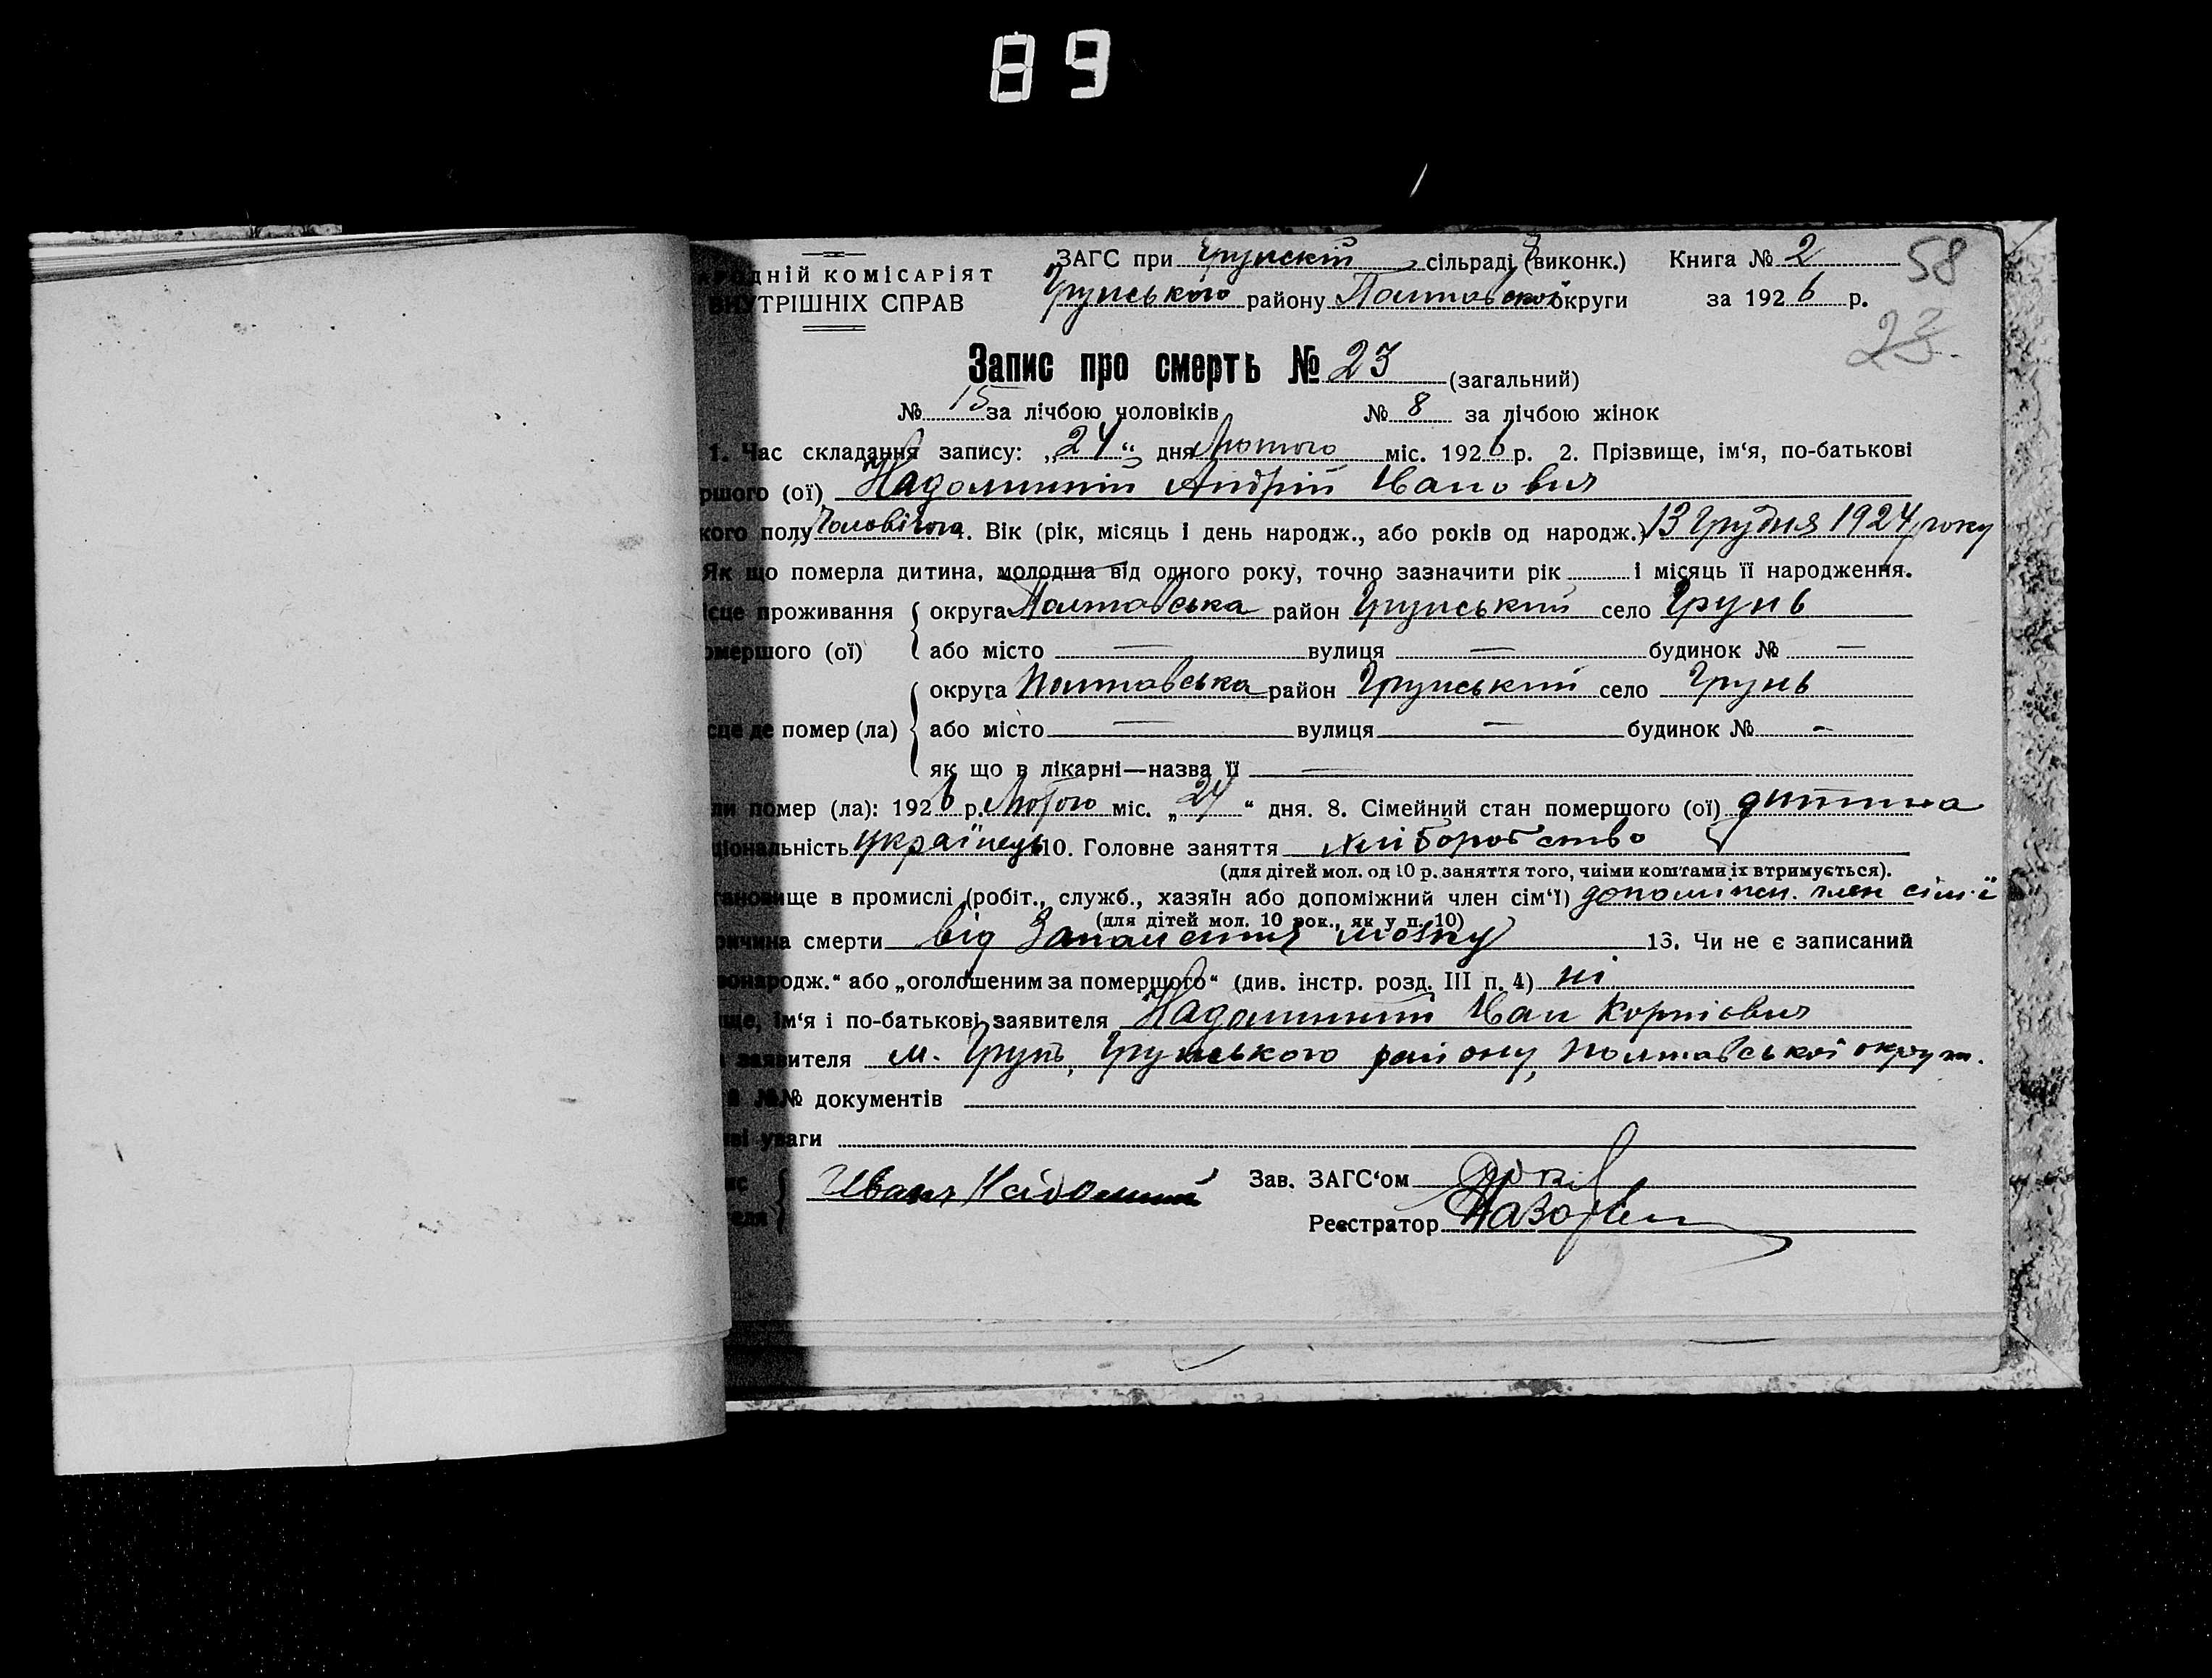 89
АРОДНІЙ КОМІСАРІЯТ
ВНУТРІШНІХ СПРАВ
ЗАГС при Грунскій сільраді (виконк.) Книга № 2
58
Грунського району Полтавської округи за 1926 р.
23
Запис про смерть № 23 (загальний)
№ 15 за лічбою чоловіків № 8 за лічбою жінок
1. Час складання запису: „24“ дня Лютого міс. 1926 р. 2. Прізвище, ім‘я, по-батькові
ршого (ої) Надолинний Андрій Іванович
кого полу Чоловічого 4. Вік (рік, місяць і день народж., або років од народж.) 13 Грудня 1924 року
Як що померла дитина, молодша від одного року, точно зазначити рік і місяць її народження.
ісце проживання округа Полтавська район Грунський село Грунь
омершого (ої) або місто — вулиця — будинок № —
округа Полтавська район Грунський село Грунь
сце де помер (ла) або місто — вулиця — будинок № -
як що в лікарні—назва її —
ли помер (ла): 1926 р. Лютого міс. „24“ дня. 8. Сімейний стан помершого (ої) дитина
ціональність українець 10. Головне заняття хліборобство
(для дітей мол. од 10 р. заняття того, чиїми коштами їх втримується).
тановище в промислі (робіт., служб., хазяїн або допоміжний член сім‘ї) допоміжн. член сім'ї
(для дітей мол. 10 рок., як у п. 10)
ричина смерти від Запалення мозку 13. Чи не є записаний
вонародж.“ або „оголошеним за померщого“ (див. інстр. розд. III п. 4) ні
ще, ім‘я і по-батькові заявителя Надолинний Іван Корнієвич
заявителя м. Грунь, Грунського району, Полтавської округи.
й №№ документів
ві уваги
ис Иванъ Надолний Зав. ЗАГС‘ом
теля
Реєстратор